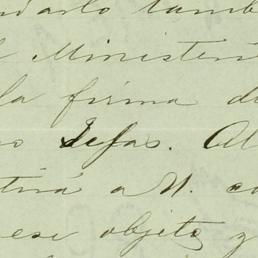 ndarlo tamb
l Ministeri
la firma d
o Jefas. Al
tirá a U. co
ese objeto y